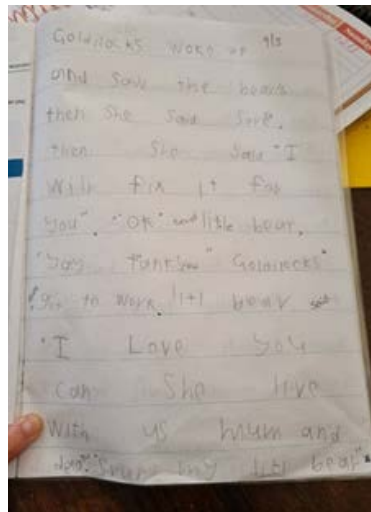 Goldilocks woke up 9/5
and save the bears
then she said sore.
then She Said "I
Will fix it for
you". "OK" said little bear,
"Say Tankyou" Goldilocks
got to work. litl bear said
"I Love you
can She live
With us Mum and
dad" "Sure my litl bear".